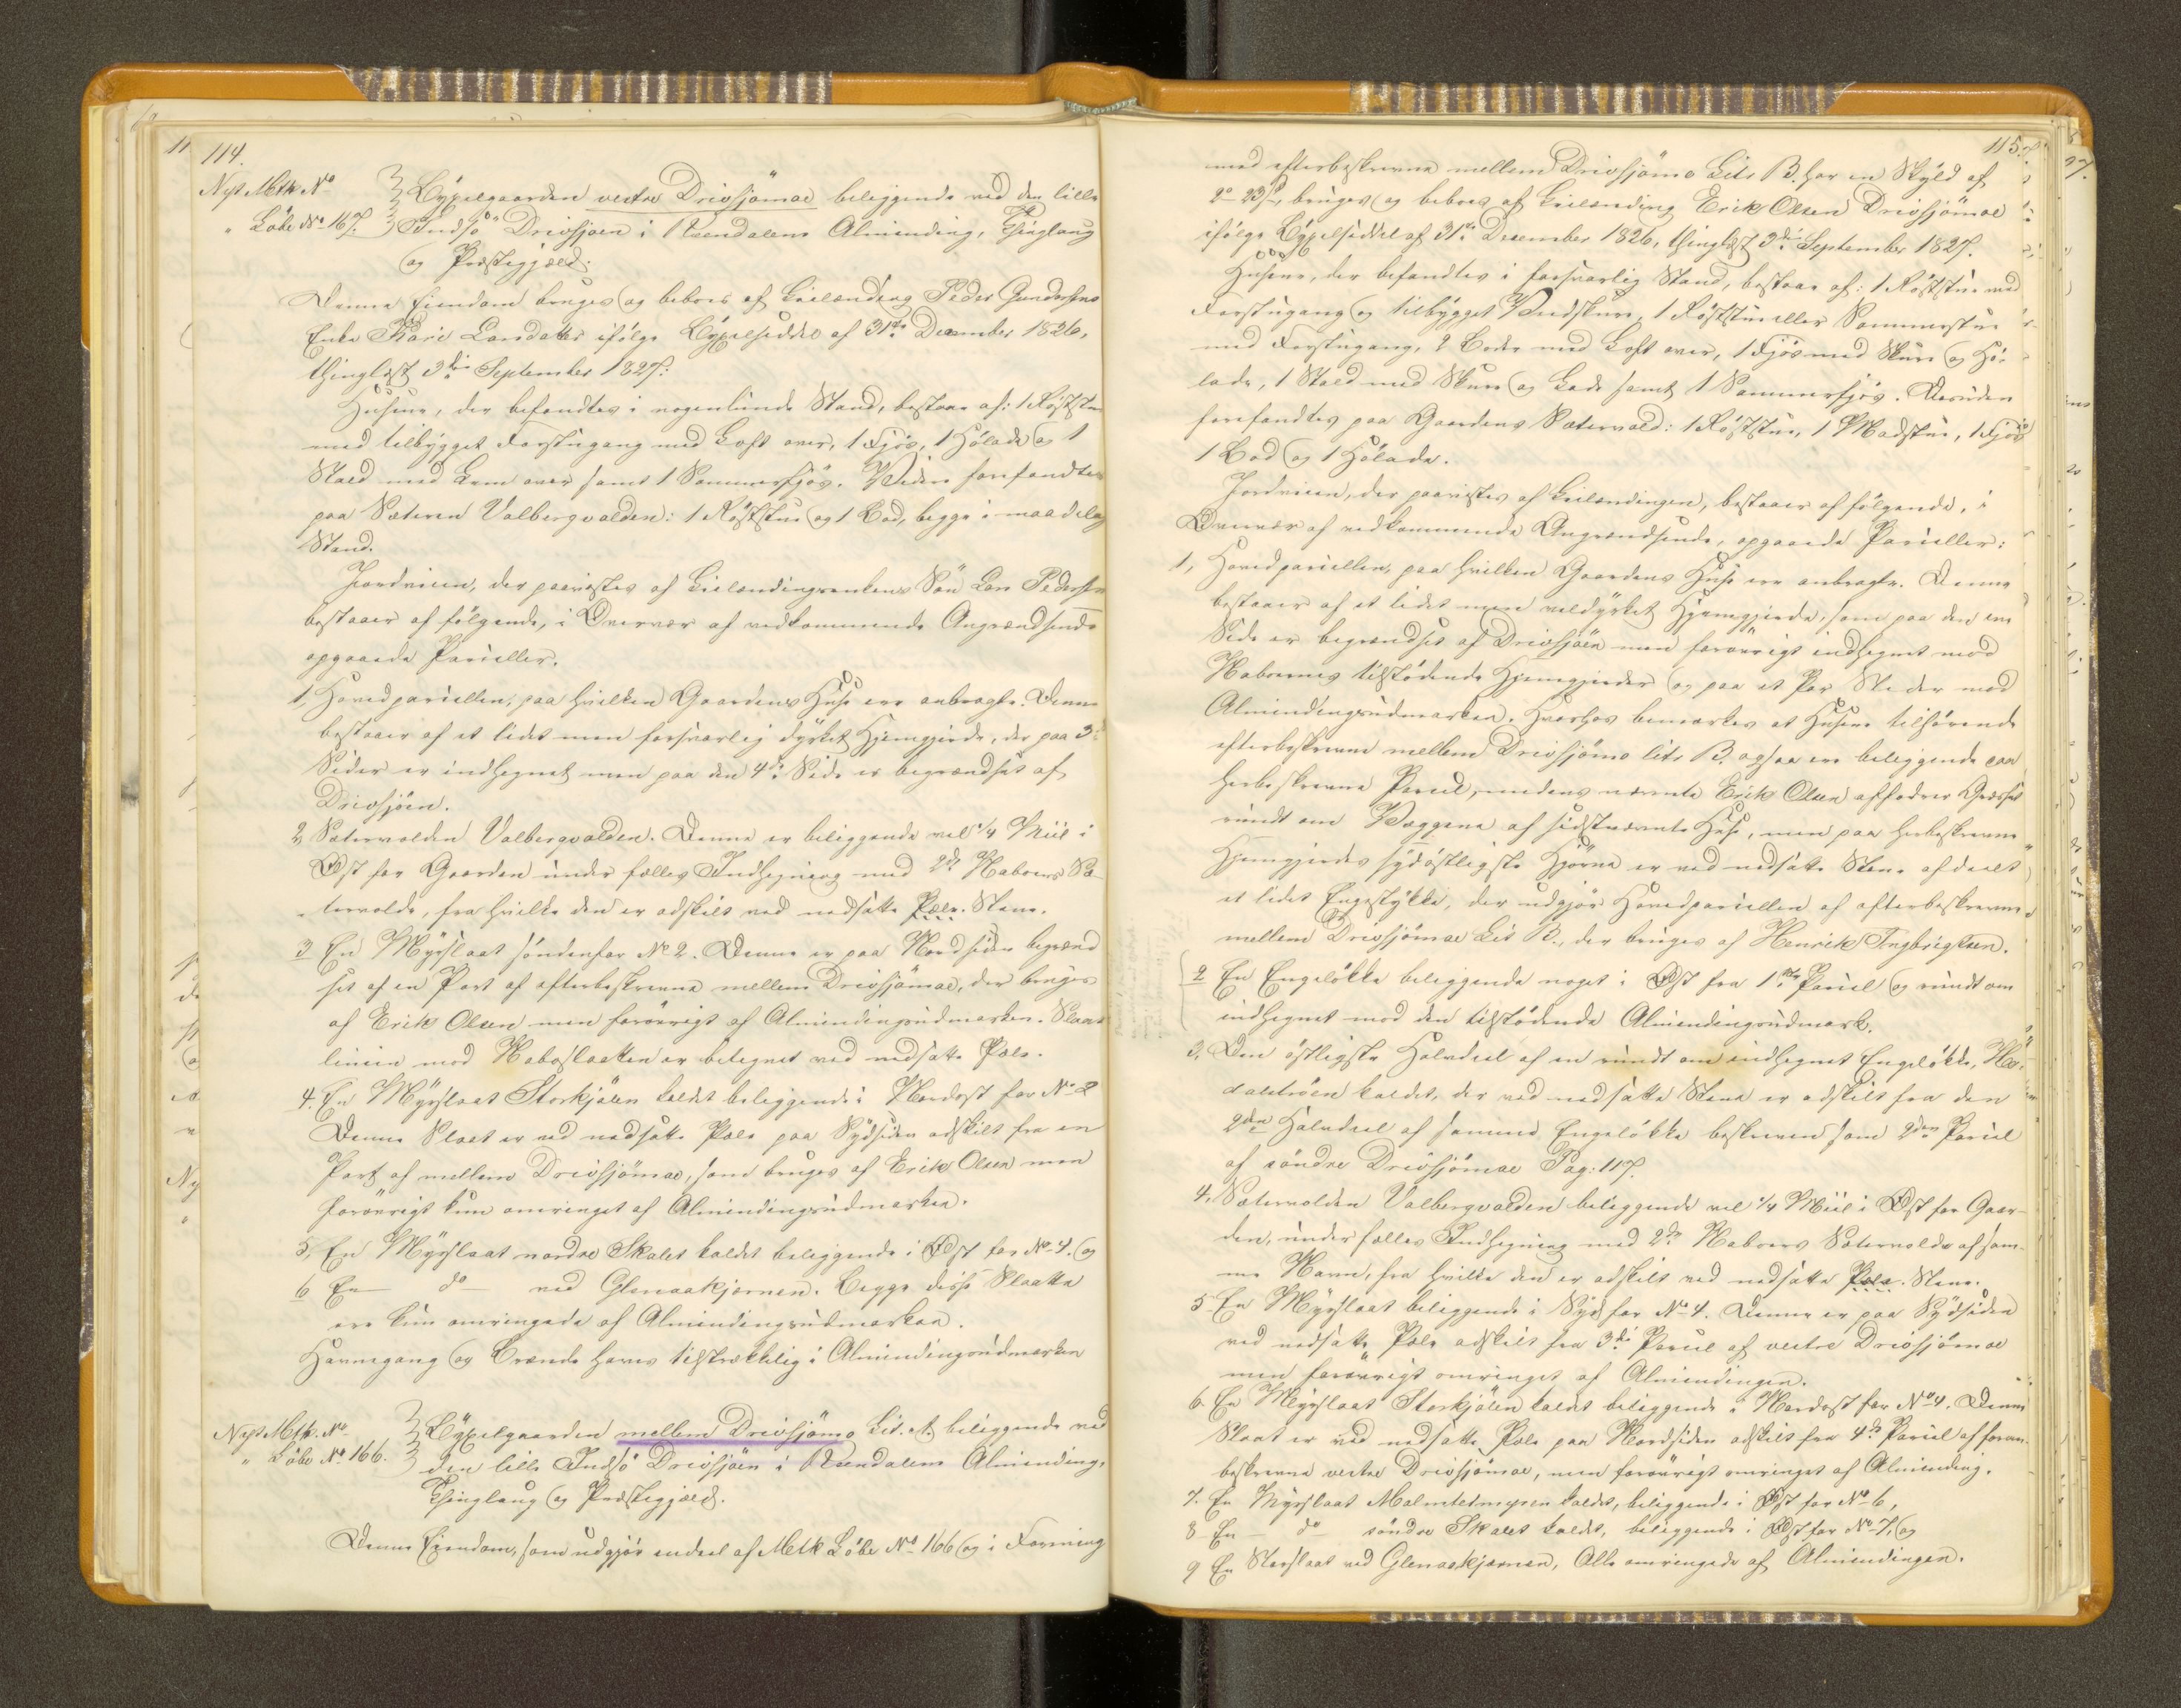 114.
Nyt Mtk No
" Löbe No 167.
Bÿxelgaarden vestre Drivsjömoe beliggende ved den lille
Indsö "Drivsjoen i Rendalens Alminding, Thinglaug
og Præstegjæld.
Denne Eiendom bruges og beboes af Leilænding Peder Gundersens
Enke Kari Larsdatter ifölge Bÿxelseddel af 31te December 1826,
thinglæst 3die September 1827.
Husene, der befandtes i nogenlunde Stand, bestaar af: 1 Röststue
med tilbÿgget Forstugang med Loft over, 1 Fjös, 1 Hölade og 1
Stald med Lem over samt 1 Sommerfjös. Viden forefandtes
paa Sæteren Valbergvolden: 1 Röststue og 1 Bod, begge i maadelig
Stand.
Jordveien, der paavistes af Leilændingenkens Sön Lars Pedersen
bestaaer af fölgende, i Overvær af vedkommende Angrændsende
opgaaede Parceller.
1, Hovedparcellen, paa hvilken Gaardens Huse ere anbragte. Denne
bestaaer af et lidet men forsvarlig dÿrket Hjemgjerde, der paa 3de
Sider er indhegnet men paa den 4de Side er begrændset af
Drivsjöen.
2 Sætervolden Valbergvolden. Denne er beliggende vel 1/4 Miil i
Öst for Gaarden under fælles Indhegning med 2de Naboers Sæ-
tervolde, fra hvilke den er adskilt ved nedsatte Pæle. Stene.
3 En Mÿrslaat söndenfor No 2. Denne er paa Nordsiden begrænd
set af en Part af efterbeskrevne mellem Drivsjömoe, der bruges
af Erik Olsen men forövrigt af Almindingsudmarken. Slaat-
linien mod Naboslaatten er betegnet ved nedsatte Pæle.
4. En Mÿrslaat Storkjölen kaldet beliggende i Nordost for No 2
Denne Slaat er ved nedsatte Pæle paa Sÿdsiden adskilt fra en
Part af mellem Drivsjömoe, som bruges af Erik Olsen men
forövrigt kun omringet af Almindingsudmarken.
5, En Mÿrslaat nordre Skalet kaldet beliggende i Öst for No 4. og
6 En do ved Glenaakjernen. Begge disse Slaatte
ere kun omringede af Almindingsudmarken.
Havnegang og Brænde haves tilstrækkelig i Almindingsudmarken
Nyt Mtk. No
" Löbe No 166.
Bÿxelgaarden mellem Drivsjömo Lit. A. beliggende ved
den lille Indsö Drivsjöen i Rendalens Alminding,
Thinglaug og Præstegjæld.
Denne Eiendom, som udgjör endeel af Mtk Löbe No 166 og i Forening
115.
med efterbeskrevne mellem Drivsjömo Litr B. har en Skÿld af
bruges og beboes af Leilænding Erik Olsen Drivsjömoe
ifölge Bÿxelseddel af 31te December 1826, thinglæst 3die September 1827.
Husene, der befandtes i forsvarlig Stand, bestaar af: 1 Röststue med
Forstugang og tilbÿgget Vedskuur, 1 Röststue eller Sommerstue
med Forstugang, 2 Boder med Loft over, 1 Fjös med Skuur og Hö-
lade, 1 Stald med Skuur og Lade samt 1 Sommerfjös. Desuden
forefandtes paa Gaardens Sætervold: 1 Röststue, 1 Madstue, 1 Fjös
1 Bod og 1 Hölade.
Jordveien, der paavistes af Leilændingen, bestaaer af fölgende, i
Overvær af vedkommende Angrændsende, opgaaede Parceller:
1, Hovedparcellen, paa hvilken Gaardens Huse ere anbragte. Denne
bestaaer af et lidet men veldÿrket Hjemgjerde, som paa den ene
Side er begrændset af Drivsjöen men forövrigt indhegnet mod
Naboernes tilstödende Hjemgjerder og paa et Par Steder mod
Almindingsudmarken. Hvorhos bemærkes at Husene tilhörende
efterbeskrevne mellem Drivsjömo litr B. ogsaa ere beliggende paa
herbeskrevne Parcel, medens nævnte Erik Olsen affodrer Græsset
rundt om Væggene af sidstnævnte Huse, men paa herbeskrevne
Hjemgjerdes sÿdöstligste Hjörne er ved nedsatte Stene afdeelt
et lidet Engestÿkke, der udgjör Hovedparcellen af efterbeskrevne
mellem Drivsjömoe Lit B., der bruges af Henrik Ingbrigtsen.
2 En Engelökke beliggende noget i Öst fra 1ste Parcel og rundt om
indhegnet mod den tilstödende Almindingsudmark.
3. Den östligste Halvdeel af en rundt om indhegnet Engelökke,
kaldet, der ved nedsatte Stene er adskilt fra den
2den Halvdeel af samme Engelökke beskreven som 2den Parcel
af söndre Drivsjömoe Pag: 117.
4, Sætervolden Valbergvolden beliggende vel 1/4 Miil i Öst for Gaar-
den, under fælles Indhegning med 2de Naboers Sætervolde af sam-
me Navn, fra hvilke den er adskilt ved nedsatte Pæle. Stene.
5 En Mÿrslaat beliggende i Sÿd for No 4. Denne er paa Sÿdsiden
ved nedsatte Pæle adskilt fra 3die Parcel af vestre Drivsjömoe
men forövrigt omringet af Almindingen.
6. En Mÿrslaat Storkjölen kaldet beliggende i Nordost for No 4. Denne
Slaat er ved nedsatte Pæle paa Nordsiden adskilt fra 4de Parcel af foran-
beskrevne vestre Drivsjömoe, men forövrigt omringet af Alminding.
7. En Mÿrslaat Malmtetmyren kaldet, beliggende i Öst for No 6,
8 En do söndre Skalet kaldet, beliggende i Öst for No 7, og
9 En Storslaat ved Glenaakjernen, Alle omringede af Almindingen.